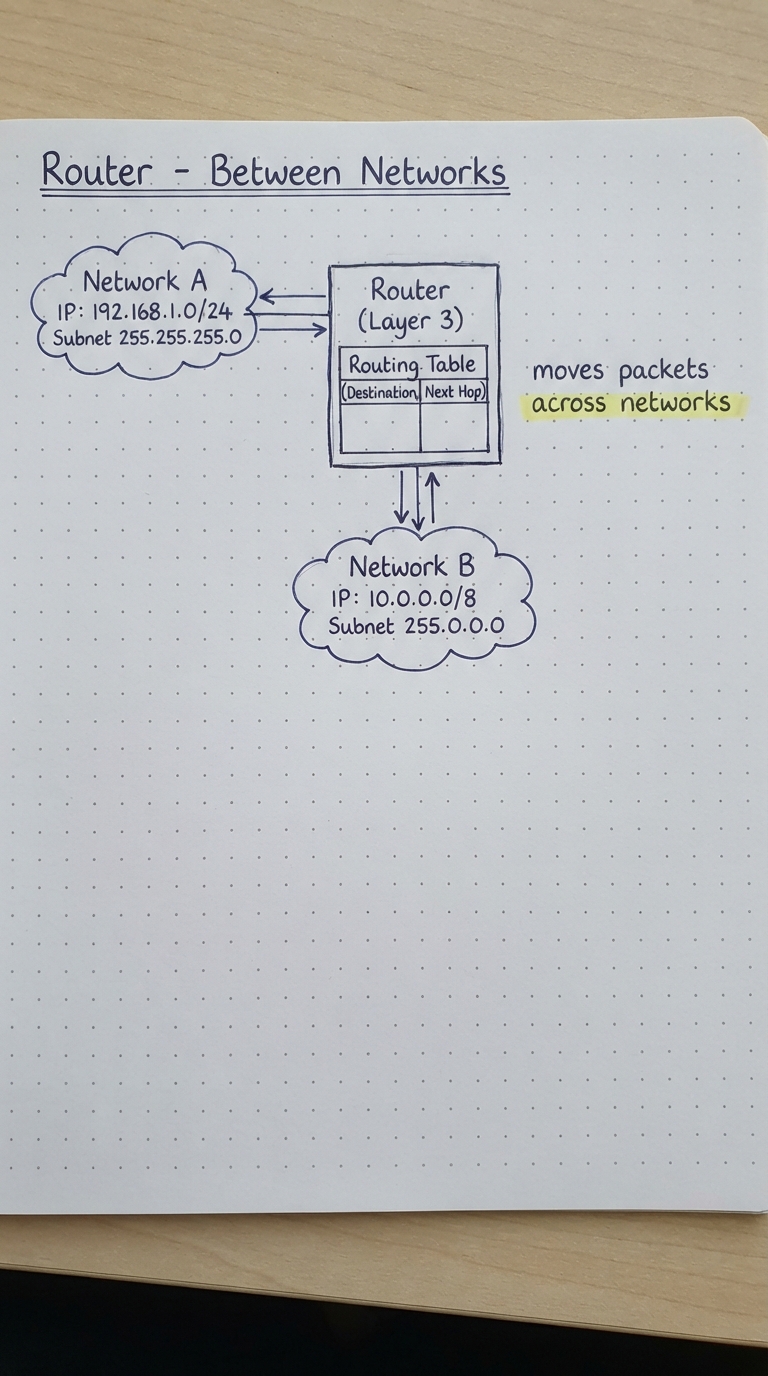 Router - Between Networks
Network A
IP: 192.168.1.0/24
Subnet 255.255.255.0
Router
(Layer 3)
Routing Table
(Destination, Next Hop)
moves packets
across networks
Network B
IP: 10.0.0.0/8
Subnet 255.0.0.0